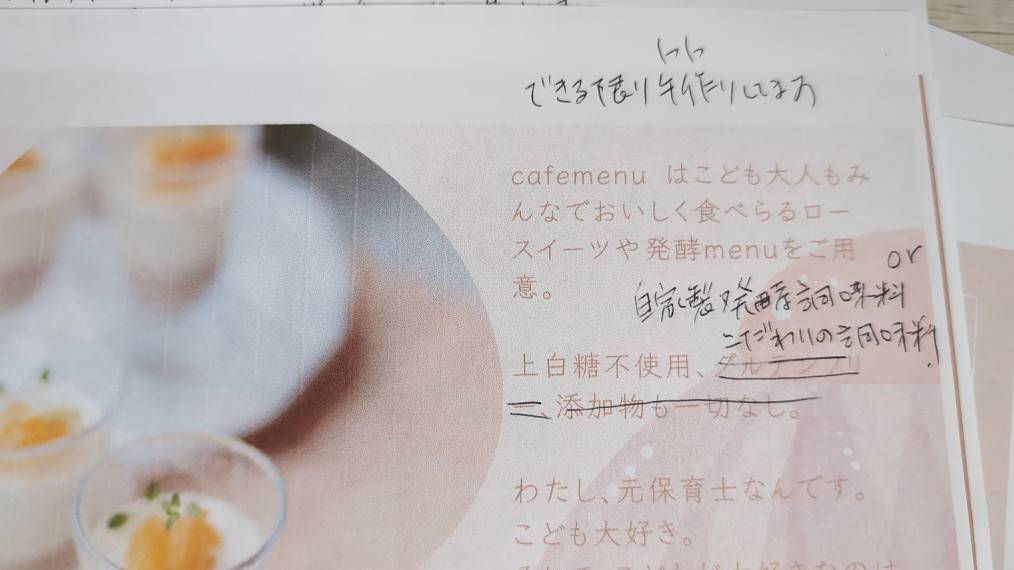 できる限り手作りしてます
cafemenu はこども大人もみ
んなでおいしく食べらるロー
スイーツや発酵menuをご用
意。
or
自家製発酵調味料
こだわりの調味料
上白糖不使用、グルテンフリ
ー、添加物も一切なし。
わたし、元保育士なんです。
こども大好き。